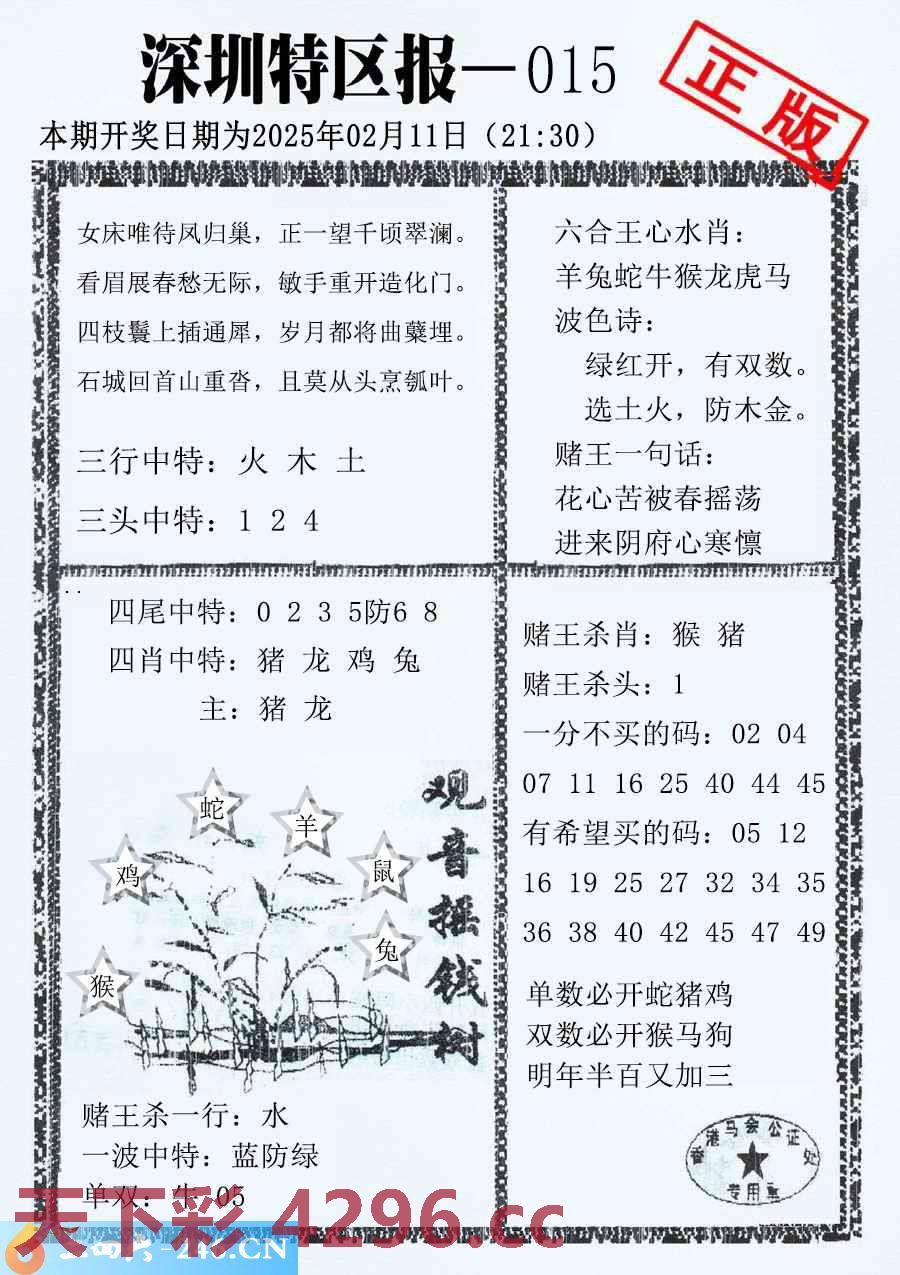 深圳特区报—015
正版
本期开奖日期为2025年02月11日（21:30）
女床唯待凤归巢，正一望千顷翠澜。
看眉展春愁无际，敏手重开造化门。
四枝鬟上插通犀，岁月都将曲蘖埋。
石城回首山重沓，且莫从头烹瓠叶。
三行中特：火 木 土
三头中特：1 2 4
六合王心水肖：
羊兔蛇牛猴龙虎马
波色诗：
绿红开，有双数。
选土火，防木金。
赌王一句话：
花心苦被春摇荡
进来阴府心寒懔
四尾中特：0 2 3 5防6 8
四肖中特：猪 龙 鸡 兔
主：猪 龙
蛇
羊
鸡
鼠
兔
猴
观音摇钱树
赌王杀一行：水
一波中特：蓝防绿
单双：牛 05
赌王杀肖：猴 猪
赌王杀头：1
一分不买的码：02 04
07 11 16 25 40 44 45
有希望买的码：05 12
16 19 25 27 32 34 35
36 38 40 42 45 47 49
单数必开蛇猪鸡
双数必开猴马狗
明年半百又加三
香港马会公证处
专用章
天下彩 4296.cc
-246.CN